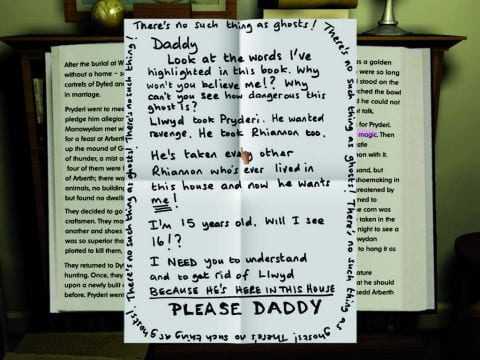 There's no such thing as ghosts!
There's no such thing as ghosts! There's no such thing as ghosts!
There's no such thing as ghosts! There's no such thing as ghosts!
There's no such thing as ghosts!
Daddy
Look at the words I've
highlighted in this book. Why
won't you believe me!? Why
can't you see how dangerous this
ghost is?
Llwyd took Pryderi. He wanted
revenge. He took Rhiannon too.
He's taken every other
Rhiannon who's ever lived in
this house and now he wants
me!
I'm 15 years old. Will I see
16!?
I NEED you to understand
and to get rid of Llwyd
BECAUSE HE'S HERE IN THIS HOUSE
PLEASE DADDY
After the burial at W
without a home – s
cantrefs of Dyfed and
in marriage.
Pryderi went to mee
pledge him allegian
Manawydan met wi
for a feast at Arberth
up the mound of G
of thunder, a mist a
four of them were l
of Arberth; there wa
animals, no building
but found no dwelli
They decided to go
craftsmen. They ma
another and shoes
was so superior tha
plotted to kill them,
They returned to Dyf
hunting. Once, they
upon a newly built
before. Pryderi went
as a golden
were so long
stood on the
ched the bowl
d he could not
talk.
for Pryderi.
magic. Then
atie
on with it.
and, but
shoemaking in
reatened by
rned to
e corn was
taken in the
night to see a
wydan
to hang it as
ature
at he should
edd Arberth